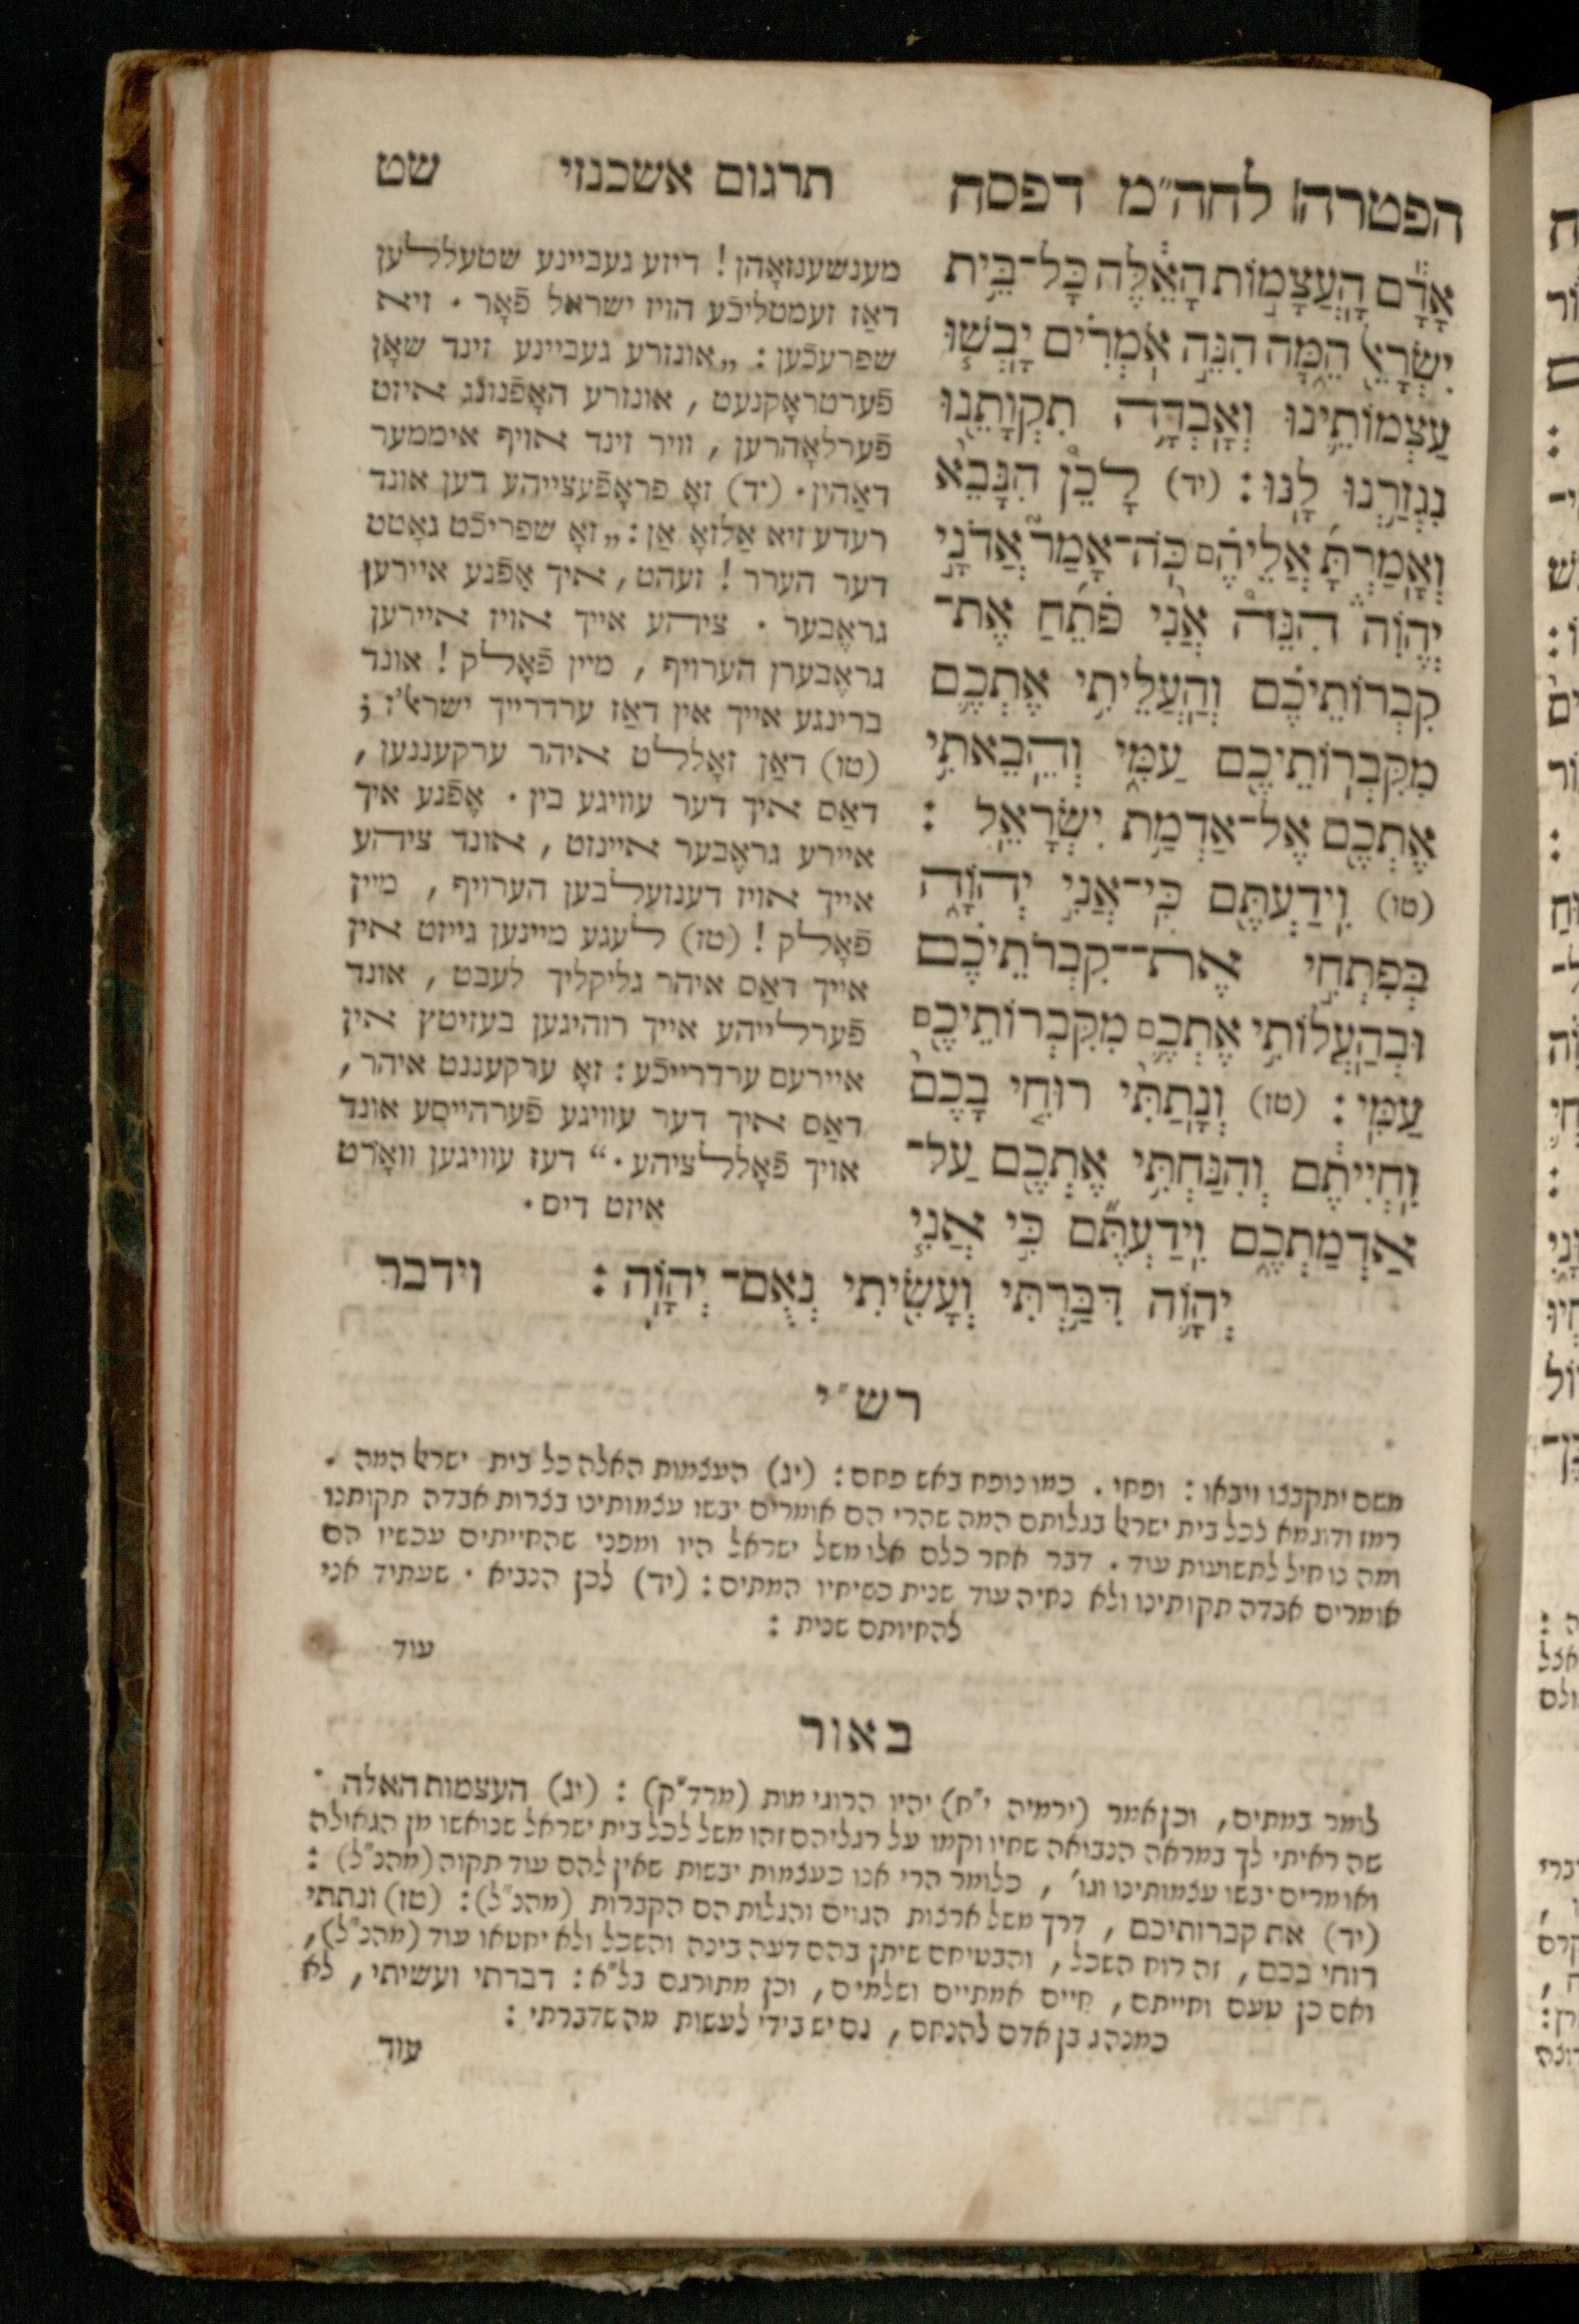 הפטרה לחה״מ דפסח
תרגום אשכנזי
שט
אָדָם֒ הָעֲצָמ֣וֹת הָאֵ֔לֶּה כָּל־בֵּ֥ית
יִשְׂרָאֵ֖ל הֵ֑מָּה הִנֵּ֣ה אֹמְרִ֗ים יָבְשׁ֧וּ
עַצְמוֹתֵ֛ינוּ וְאָבְדָ֥ה תִקְוָתֵ֖נוּ
נִגְזַ֥רְנוּ לָֽנוּ׃ (יד) לָכֵן֩ הִנָּבֵ֨א
וְאָמַרְתָּ֜ אֲלֵיהֶ֗ם כֹּֽה־אָמַר֮ אֲדֹנָ֣י
יֱהֹוִה֒ הִנֵּה֩ אֲנִ֨י פֹתֵ֜חַ אֶת־
קִבְרוֹתֵיכֶ֗ם וְהַעֲלֵיתִ֥י אֶתְכֶ֛ם
מִקִּבְרוֹתֵיכֶ֖ם עַמִּ֑י וְהֵבֵאתִ֥י
אֶתְכֶ֖ם אֶל־אַדְמַ֥ת יִשְׂרָאֵֽל׃
(טו) וִֽידַעְתֶּ֖ם כִּֽי־אֲנִ֣י יְהֹוָ֑ה
בְּפִתְחִ֣י אֶת־קִבְרֹתֵיכֶ֗ם
וּבְהַעֲלוֹתִ֥י אֶתְכֶ֛ם מִקִּבְרוֹתֵיכֶ֖ם
עַמִּֽי׃ (טז) וְנָתַתִּ֨י רוּחִ֤י בָכֶם֙
וִחְיִיתֶ֔ם וְהִנַּחְתִּ֥י אֶתְכֶ֖ם עַל־
אַדְמַתְכֶ֑ם וִידַעְתֶּ֞ם כִּ֣י אֲנִ֧י
יְהֹוָ֛ה דִּבַּ֥רְתִּי וְעָשִׂ֖יתִי נְאֻם־יְהֹוָֽה׃
וידבר
מענשענזאָהן! דיזע געביינע שטעללען
דאַז זעמטליכֿע הויז ישראל פֿאָר. זיא
שפרעכֿען: „אונזרע געביינע זינד שאָן
פֿערטראָקנעט, אונזרע האָפֿנונג איזט
פֿערלאָהרען, וויר זינד אויף איממער
דאַהין. (יד) זאָ פראָפֿעצייהע דען אונד
רעדע זיא אַלזאָ אַן: „זאָ שפריכֿט גאָטט
דער הערר! זעהט, איך אָפֿנע איירען
גראָבער. ציהע אייך אויז איירען
גראָבערן הערויף, מיין פֿאָלק! אונד
ברינגע אייך אין דאַז ערדרייך ישראל'ז;
(טו) דאַן זאָללט איהר ערקעננען,
דאַס איך דער עוויגע בין. אָפֿנע איך
איירע גראָבער איינזט, אונד ציהע
אייך אויז דענזעלבען הערויף, מיין
פֿאָלק! (טז) לעגע מיינען גייזט אין
אייך דאַס איהר גליקליך לעבט, אונד
פֿערלייהע אייך רוהיגען בעזיטץ אין
איירעם ערדרייכֿע: זאָ ערקעננט איהר,
דאַס איך דער עוויגע פֿערהייסע אונד
אויך פֿאָללציהע.“ דעז עוויגען וואָרט
איזט דיס.
רש״י
משם יתקבצו ויבאו: ופחי. כמו נופח באש פחם: (יג) העצמות האלה כל בית ישראל המה.
רמז ודוגמא לכל בית ישראל בגלותם המה שהרי הם אומרים יבשו עצמותינו בצרות אבדה תקותנו
ומה נוחיל לתשועות עוד. דבר אחר כלם אלו משל ישראל היו ומפני שהחייתים עכשיו הם
אומרים אבדה תקותינו ולא נחיה עוד שנית כשיחיו המתים: (יד) לכן הנביא. שעתיד אני
להחיותם שנית:
עוד
באור
לומר במתים, וכן אמר (ירמיה י״ח) יהיו הרוגי מות (מרד״ק): (יג) העצמות האלה.
שה ראיתי לך במראה הנבואה שחיו וקמו על רגליהם זהו משל לכל בית ישראל שנואשו מן הגאולה
ואומרים יבשו עצמותינו וגו', כלומר הרי אנו כעצמות יבשות שאין להם עוד תקוה (מהנ״ל):
(יד) את קברותיכם, דרך משל ארצות הגוים והגלות הם הקברות (מהנ״ל): (טז) ונתתי
רוחי בכם, זה רוח השכל, והבטיחם שיתן בהם דעה בינה והשכל ולא יחטאו עוד (מהנ״ל),
ואם כן טעם וחייתם, חיים אמתיים ושלמים, וכן מתורגם בל״א: דברתי ועשיתי, לא
כמנהג בן אדם להנחם, גם יש בידי לעשות מה שדברתי:
עוד